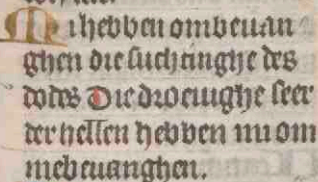 Mi hebben ombeuan
ghen die suchtinghe des
dodes Die droeuighe seer
der hellen hebben mi om
mebeuanghen.